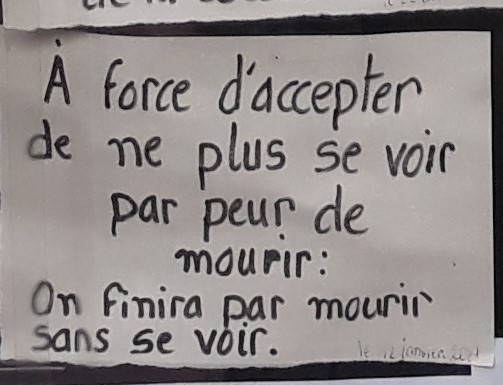 À force d'accepter
de ne plus se voir
par peur de
mourir:
On finira par mourir
sans se voir.
le 12 janvier 2021